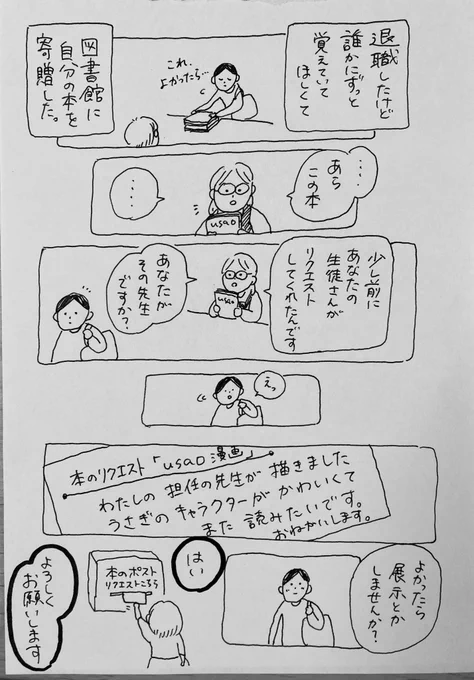 退職したけど
誰かにずっと
覚えていて
ほしくて
これ、
よかったら…
図書館に
自分の本を
寄贈した。
‥‥
あら
この本
usao
‥‥
少し前に
あなたの
生徒さんが
リクエスト
してくれたんです
usao
あなたが
その先生
ですか？
えっ
本のリクエスト「usao漫画」
わたしの担任の先生が描きました
うさぎのキャラクターがかわいくて
また読みたいです。
おねがいします。
よかったら
展示とか
しませんか？
はい
本のポスト
リクエストこちら
よろしく
お願いします